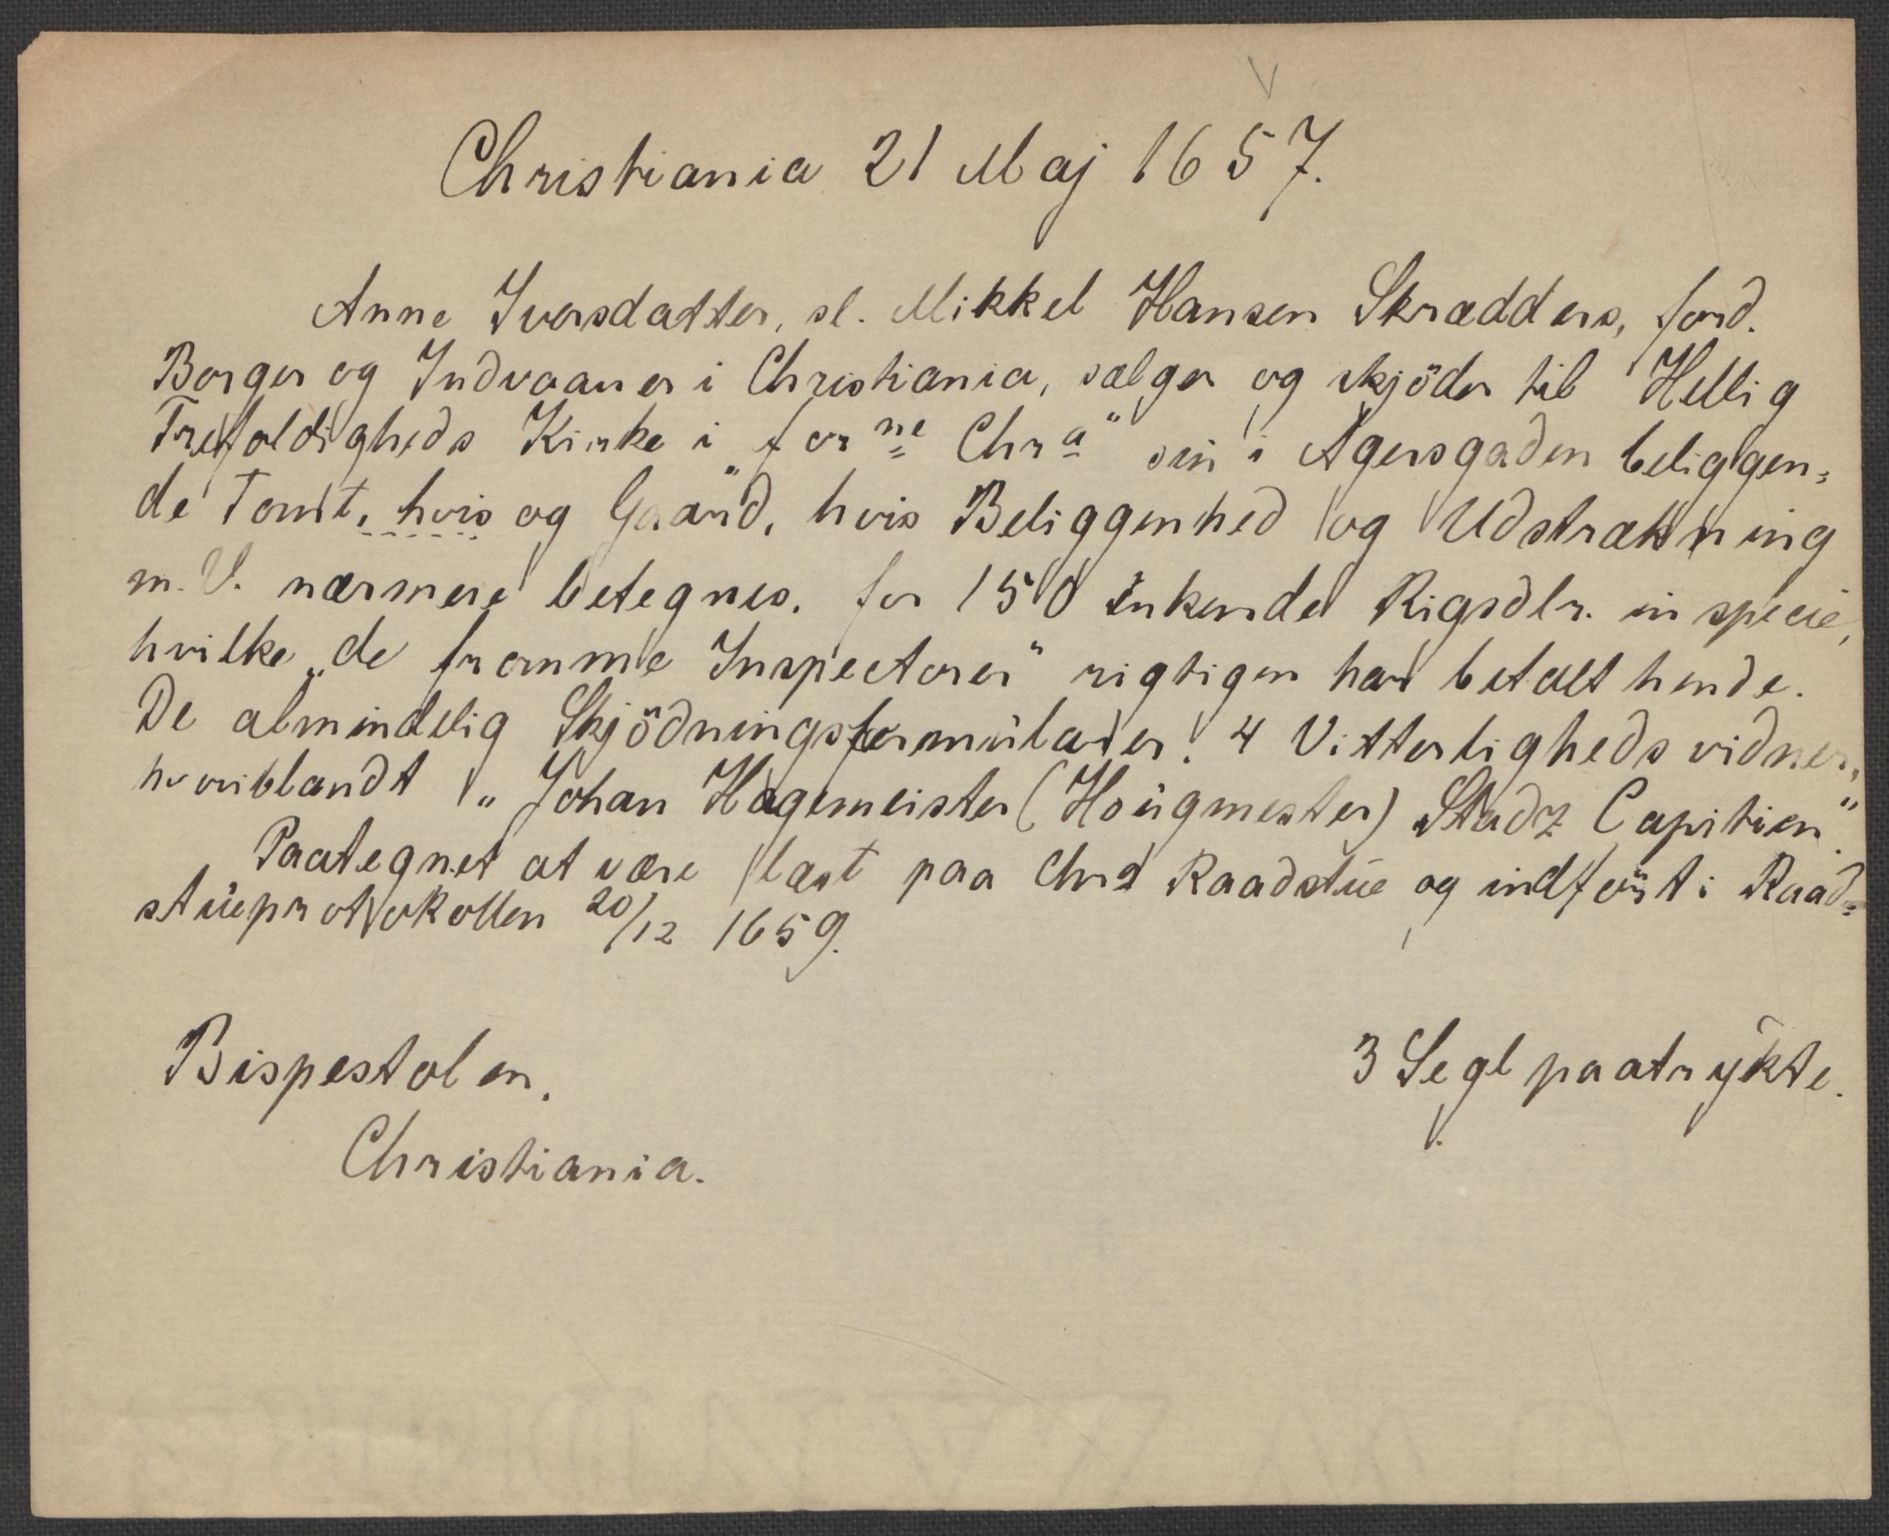 Christiania 21 Maj 1657.
Anne Iversdatter, sl. Mikkel Hansen Skrædders, ford.
Borger og Indvaaner i Christiania, sælger og skjöder til Hellig
Trefoldigheds Kirke i forne Chra" sin i Agersgaden beliggen=
de Tomt, hvis og Gaard, hvis Beliggenhed og Udstrækning
m. V. nærmere betegnes, for 150 enkende Rigsdlr. in specie,
hvilke „de fromme Inspectorer" rigtigen har betalt hende.
De almindelig Skjödningsformularer. 4 Vitterligheds vidner,
hvoriblandt „Johan Hagemeister (Hougmester) Stadz Capitien".
Paategnet at være læst paa Chra Raadstue og indfört i Raad=
stueprotokollen 20/12 1659.
Bispestolen.
3 Segl paatrykte.
Christiania.